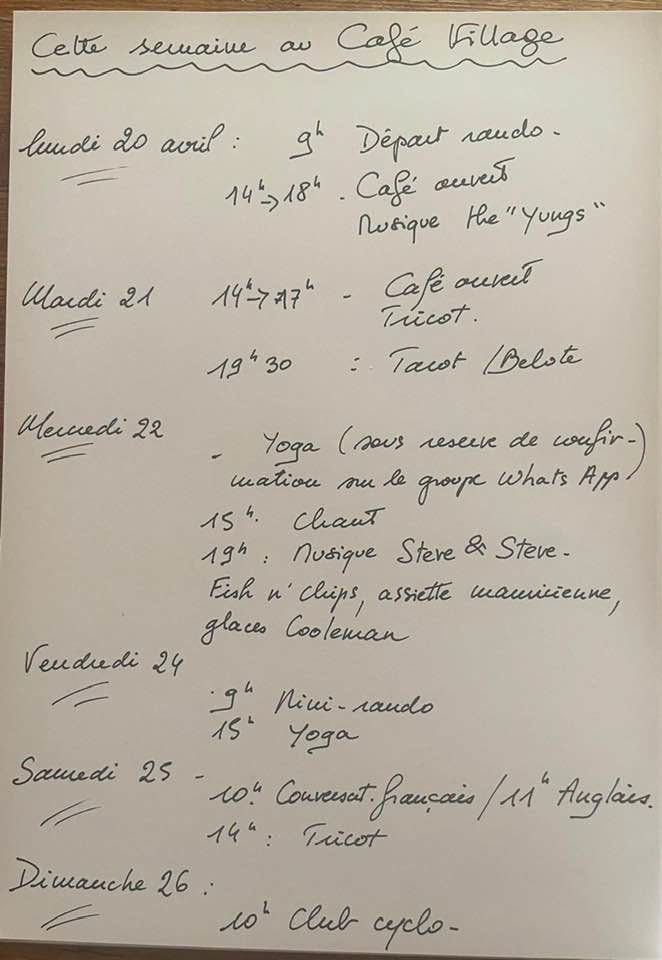 Cette semaine au Café Village
lundi 20 avril : 9h Départ rando -
14h -> 18h - Café ouvert
Musique the "Yungs"
Mardi 21 14h -> 17h - Café ouvert
Tricot.
19h30 : Tarot / Belote
Mercredi 22
- Yoga (sous reserve de confir-
mation sur le groupe Whats App)
15h. Chant
19h : Musique Steve & Steve -
Fish n' chips, assiette mauricienne,
glaces Cooleman
Vendredi 24
9h Mini-rando
15h Yoga
Samedi 25 -
10h. Conversat. français / 11h Anglais.
14h : Tricot
Dimanche 26 :
10h Club cyclo -